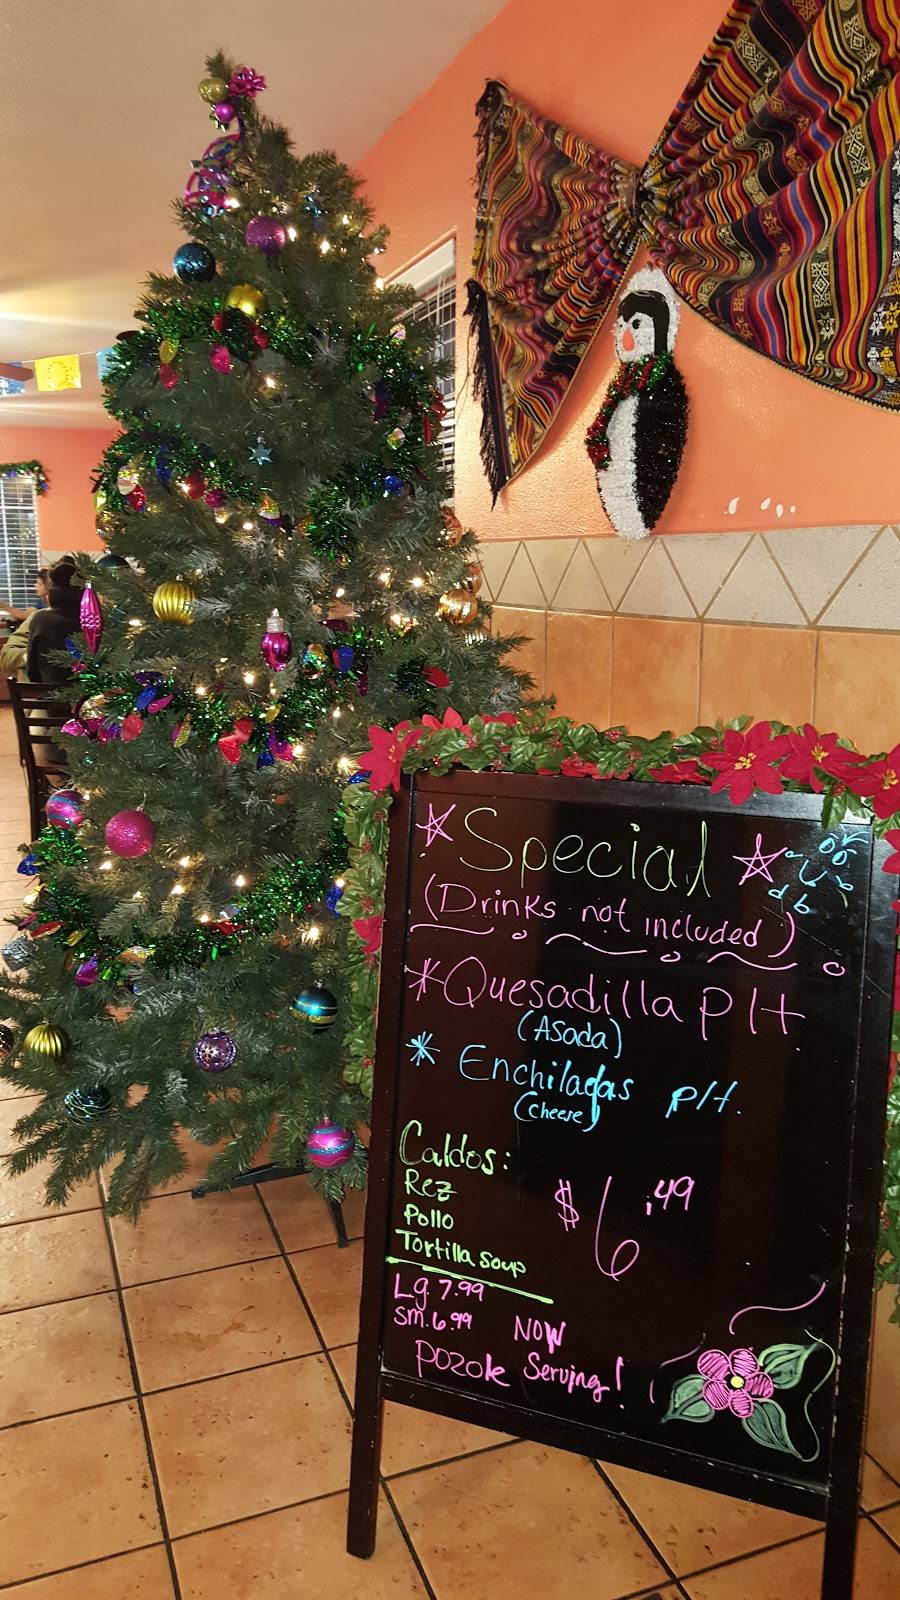 Special
(Drinks not included)
*Quesadilla Plt
(Asada)
* Enchiladas plt.
(Cheese)
Caldos:
Rez
Pollo
Tortilla soup
$6.49
Lg. 7.99
Sm. 6.99
NOW
Serving!
Pozole